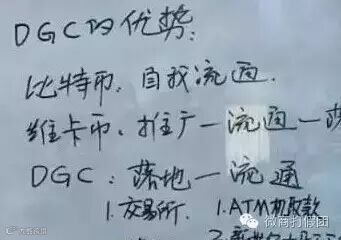 DGC的优势：
比特币，自我流通．
维卡币，推广一流通一
DGC：落地一流通
1.交易所． 1.ATM机取款
大数据说
微商打假团